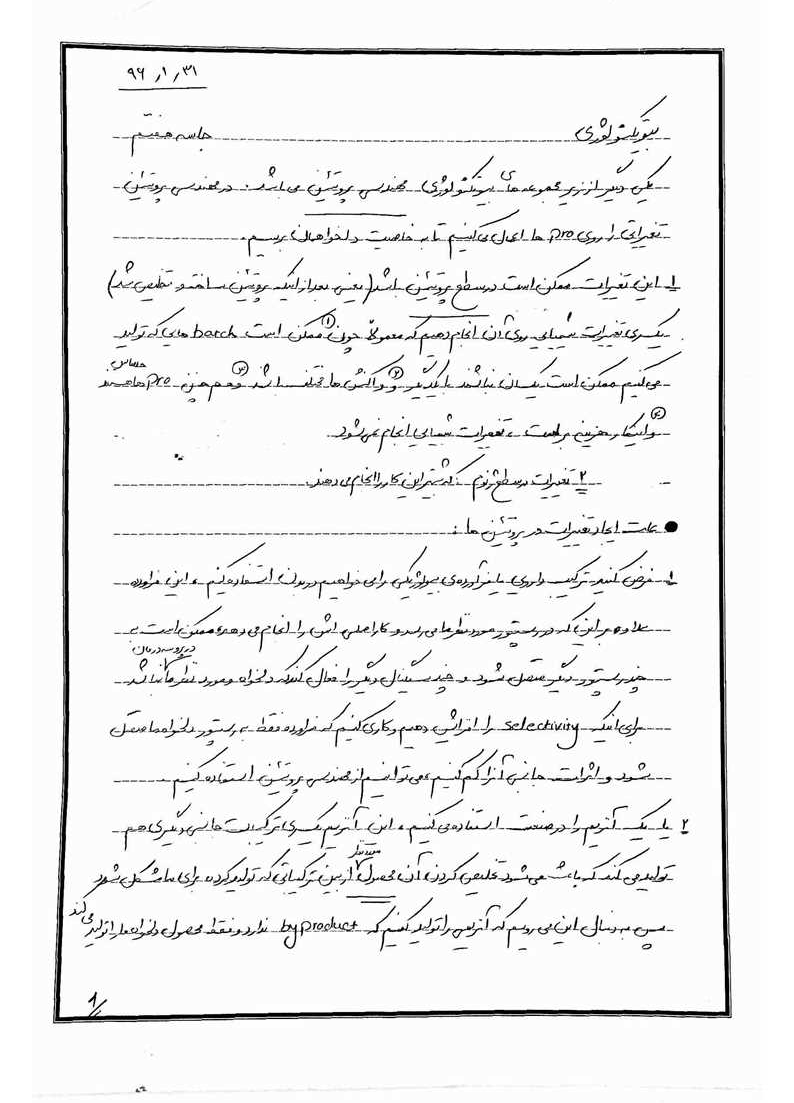 ۹۶ / ۱ / ۳۱
بیوتکنولوژی جلسه هفتم
یکی دیگر از زیر مجموعه های بیوتکنولوژی مهندسی پروتئین می باشد. در مهندسی پروتئین
تغییراتی را روی pro ها اعمال می کنیم تا به خاصیت دلخواهمان برسیم.
۱_ این تغییرات ممکن است در سطح پروتئین باشد (یعنی بعد از اینکه پروتئین ساخته و تخلیص شد)
یکسری تغییرات شیمیایی روی آن انجام دهیم که معمولاً چون ① ممکن است barch هایی که تولید
می کنیم ممکن است یکسان نباشند با یکدیگر ② و واکنش ها مختلف باشد ③ و همچنین pro ها حساس هستند
④ و اینکار هزینه بر است، تغییرات شیمیایی انجام نمی شود.
۲_ تغییرات در سطح ژنوم: که بیشتر این کار را انجام می دهند.
● علت ایجاد تغییرات در پروتئین ها:
۱_ فرض کنید ترکیب دارویی یا فرآورده‌ی بیولوژیکی را می خواهیم در بدن استفاده کنیم، این فراورده
علاوه بر این که در رسپتور مورد نظر ما می رسد و کار اصلی اش را انجام می دهد، ممکن است به
چند رسپتور دیگر متصل شود و چند سیگنال دیگر را فعال کند که دلخواه و مورد نظر ما در پروسه درمان نباشد
برای اینکه selectivity را افزایش دهیم و کاری کنیم که فراورده فقط به رسپتور دلخواه ما متصل
شود و اثرات جانبی آنرا کم کنیم، می توانیم از مهندسی پروتئین استفاده کنیم.
۲_ یا یک آنزیم را در صنعت استفاده می کنیم، این آنزیم یکسری ترکیبات جانبی دیگری هم
تولید می کند که باعث می شود تخلیص کردن آن محصول از بین ترکیباتی که تولید کرده برای ما مشکل شود
پس به دنبال این می رویم که آنزیمی را تولید کنیم که by product ندارد و فقط محصول دلخواه ما را تولید می کند
۱